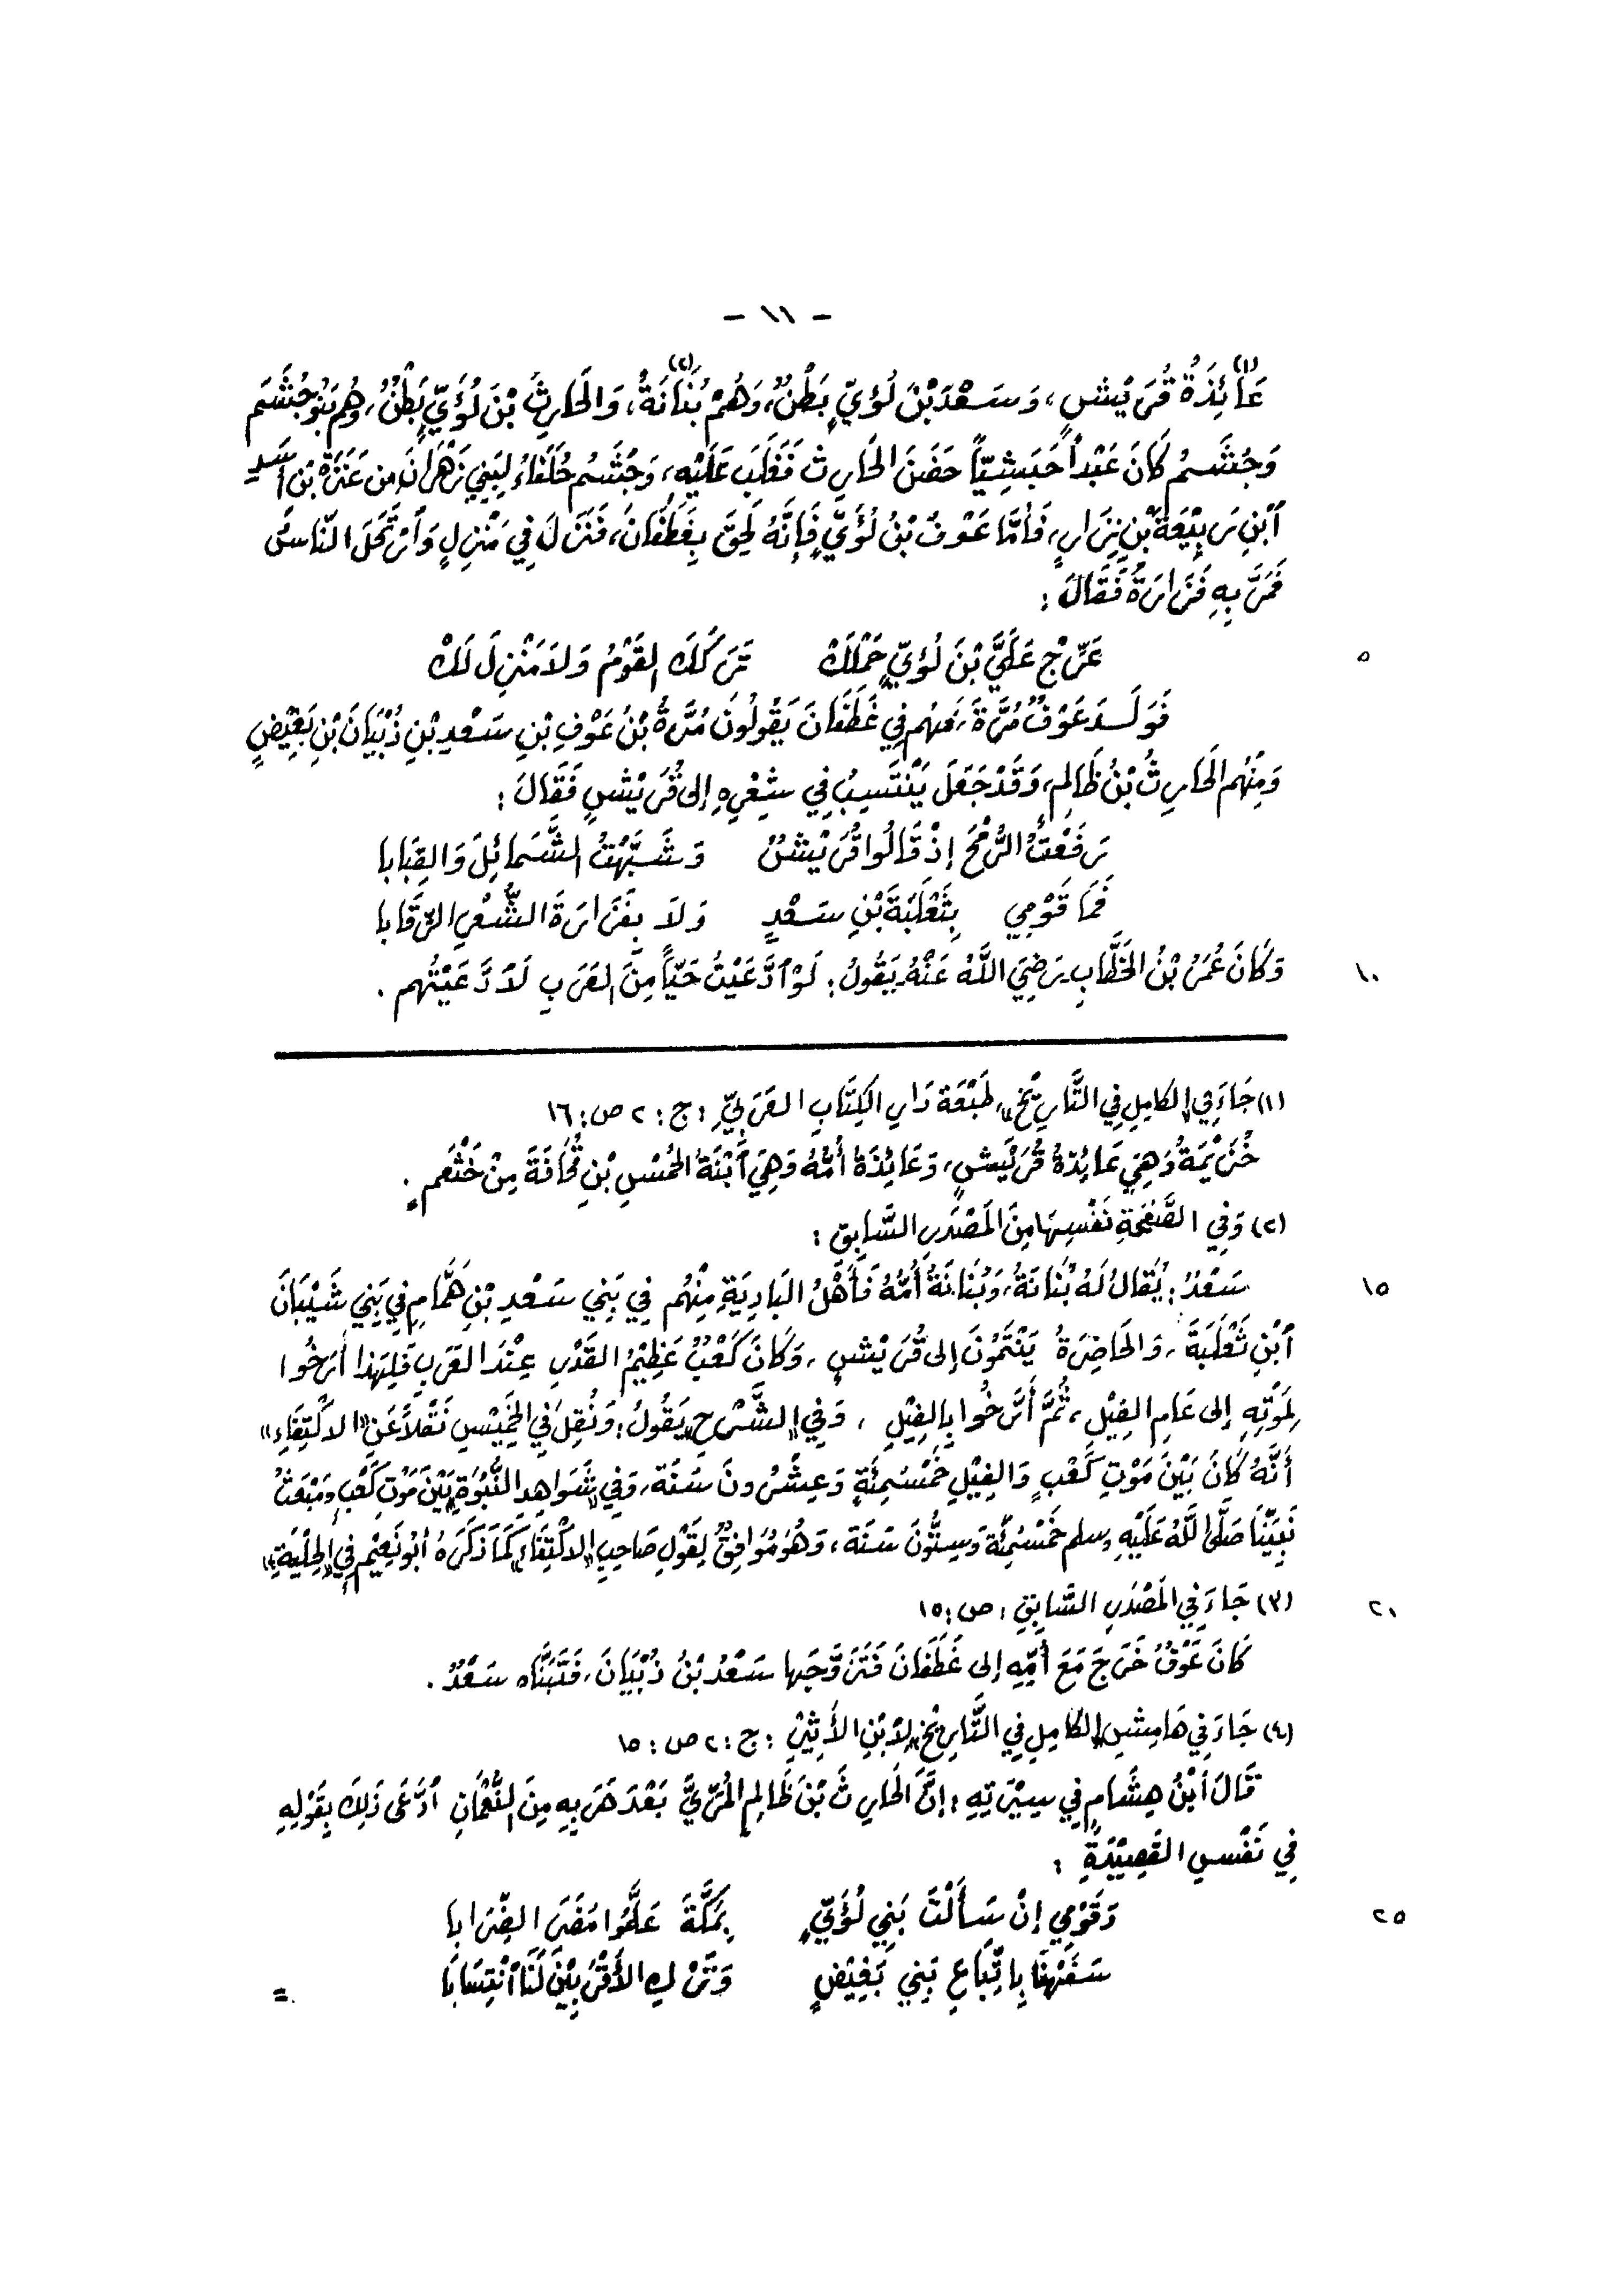 - ١١ -
(١) (٢)
عَائِذَةُ قُرَيْشٍ، وَسَعْدَ بْنَ لُؤَيٍّ بَطْنٌ، وَهُمْ بُنَانَةُ، وَالحَارِثَ بْنَ لُؤَيٍّ بَطْنٌ، وَهُم بَنُو جُشَمَ
وَجُشَمُ كَانَ عَبْداً حَبَشِيّاً حَضَنَ الحَارِثَ فَغَلَبَ عَلَيْهِ، وَجُشَمُ حُلَفَاءُ لِبَنِي هَزَّانَ مِن عَنَزَةَ بْنِ أَسَدِ
ٱبْنِ رَبِيْعَةَ بْنِ نِزَارٍ، فَأَمَّا عَوْفُ بْنُ لُؤَيٍّ فَإِنَّهُ لَحِقَ بِغَطَفَانَ، فَنَزَلَ فِي مَنْزِلٍ وَٱرْتَحَلَ النَّاسُ
فَمَرَّ بِهِ فَزَارَةُ فَقَالَ :
٥ عَرِّجْ عَلَيَّ بْنَ لُؤَيٍّ جَمَلَكْ تَرَكَكَ القَوْمُ وَلاَ مَنْزِلَ لَكْ
فَوَلَدَ عَوْفٌ مُرَّةَ، فَهُم فِي غَطَفَانَ يَقُولُونَ مُرَّةُ بْنُ عَوْفِ بْنِ سَعْدِ بْنِ ذُبْيَانَ بْنِ بَغِيْضٍ
وَمِنْهُم الحَارِثُ بْنُ ظَالِمٍ، وَقَدْ جَعَلَ يَنْتَسِبُ فِي شِعْرِهِ إِلى قُرَيْشٍ فَقَالَ :
رَفَعْتُ الرُّمْحَ إِذْ قَالُوا قُرَيْشٌ وَشَبَّهْتُ الشَّمَائِلَ وَالقِبَابا
فَمَا قَوْمِي بِثَعْلَبَةَ بْنِ سَعْدٍ وَلاَ بِفَزَارَةَ الشُّعْرِ الرِّقَابا
١٠ وَكَانَ عُمَرُ بْنُ الخَطَّابِ رَضِيَ اللَّهُ عَنْهُ يَقُولُ: لَوْ ٱدَّعَيْتُ حَيّاً مِنَ العَرَبِ لاَدَّعَيْتُهم .
(١) جَاءَ فِي «الكَامِلِ فِي التَّارِيْخِ» طَبْعَة دَارِ الكِتَابِ العَرَبِيِّ : ج : ٢ ص : ١٦
خُزَيْمَةُ وَهِيَ عَائِذَةُ قُرَيْشٍ، وَعَائِذَةُ أُمُّهُ وَهِيَ ٱبْنَةُ الخِمْسِ بْنِ قُحَافَةَ مِنْ خَثْعَمٍ .
(٢) وَفِي الصَّفْحَةِ نَفْسِهَا مِنَ المَصْدَرِ السَّابِقِ :
١٥ سَعْدٌ : يُقَالُ لَهُ بُنَانَةُ، وَبُنَانَةُ أُمُّهُ فَأَهْلُ البَادِيَةِ مِنْهُم فِي بَنِي سَعْدِ بْنِ هَمَّامٍ فِي بَنِي شَيْبَانَ
ٱبْنِ ثَعْلَبَةَ، وَالحَاضِرَةُ يَنْتَمُونَ إِلى قُرَيْشٍ، وَكَانَ كَعْبٌ عَظِيْمَ القَدْرِ عِنْدَ العَرَبِ فَلِهَذا أَرَّخُوا
لِمَوْتِهِ إِلى عَامِ الفِيْلِ، ثُمَّ أَرَّخُوا بِالفِيْلِ ، وَفِي «الشَّرْحِ» يَقُولُ: وَنُقِلَ فِي الخَمِيْسِ نَقْلاً عَنِ «الاكْتِفَاءِ»
أَنَّهُ كَانَ بَيْنَ مَوْتِ كَعْبٍ وَالفِيْلِ خَمْسُمِئَةٍ وَعِشْرُونَ سَنَة، وَفِي «شَوَاهِدِ النُّبُوَّةِ» بَيْنَ مَوْتِ كَعْبٍ وَمَبْعَثِ
نَبِيِّنَا صَلَّى اللَّهُ عَلَيْهِ وسلم خَمْسُمِئَة وَسِتُّونَ سَنَة، وَهُوَ مُوَافِقٌ لِقَوْلِ صَاحِبِ «الاكْتِفَاءِ» كَمَا ذَكَرَهُ أَبُو نَعِيْمٍ فِي «الحِلْيَةِ»
٢١ (٣) جَاءَ فِي المَصْدَرِ السَّابِقِ : ص : ١٥
كَانَ عَوْفٌ خَرَجَ مَعَ أُمِّهِ إِلى غَطَفَانَ فَتَزَوَّجَها سَعْدُ بْنُ ذُبْيَانَ، فَتَبَنَّاه سَعْدٌ .
(٤) جَاءَ فِي هَامِشِ «الكَامِلِ فِي التَّارِيْخِ» لاِبْنِ الأَثِيْرِ : ج : ٢ ص : ١٥
قَالَ ٱبْنُ هِشَامٍ فِي سِيْرَتِهِ : إِنَّ الحَارِثَ بْنَ ظَالِمٍ المُرِّيَّ بَعْدَ هَرَبِهِ مِنَ النُّعْمَانِ ٱدَّعَى ذَلِكَ بِقَوْلِهِ
فِي نَفْسِ القَصِيْدَةِ :
٢٥ وَقَوْمِي إِنْ سَأَلْتَ بَنِي لُؤَيٍّ بِمَكَّةَ عَلَّمُوا مُضَرَ الضِّرَابا
سَفَهْنَا بِاتِّبَاعِ بَنِي بَغِيْضٍ وَتَرْكِ الأَقْرَبِيْنَ لَنَا ٱنْتِسَابَا
=